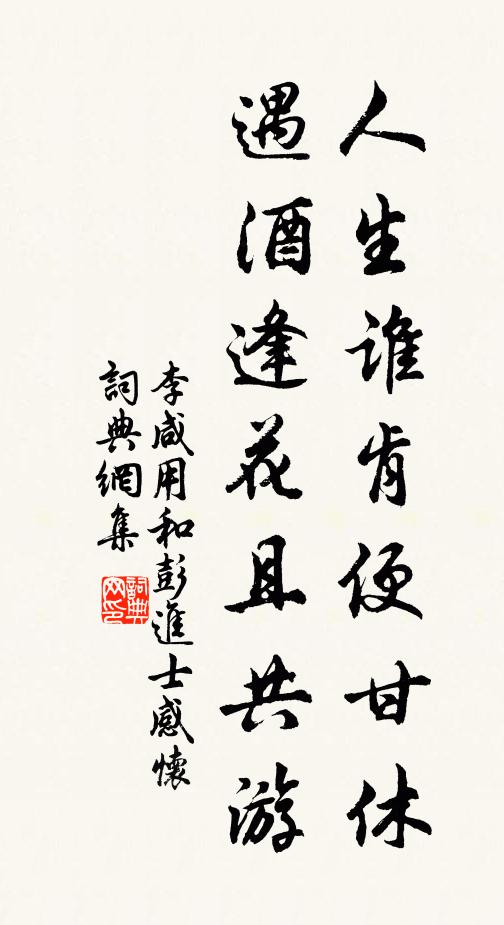 人生誰肯便甘休
遇酒逢花且共游
李咸用和彭進士感懷
詞典網集
詞典
网印